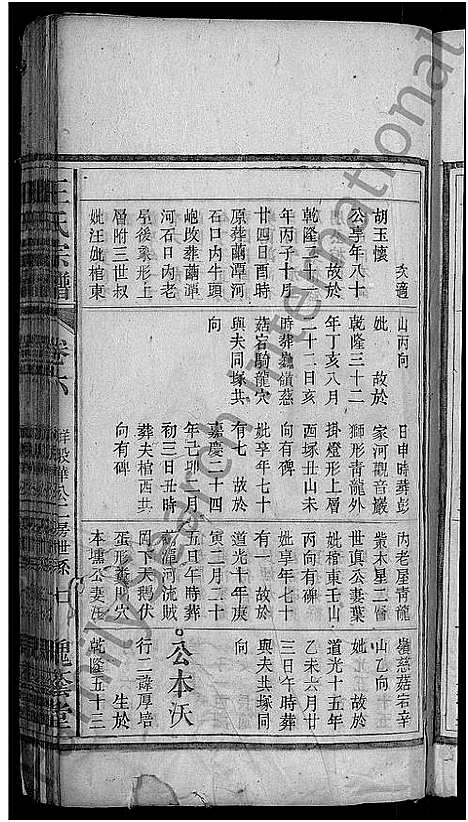 次適
胡玉懷
公享年八十
一 故於
乾隆五十一
年丙子十月
廿四日酉時
原葬繭潭河
石口內牛頭
峴改葬繭潭
河石日內老
屋後象形上
層附三世叔
妣汪妣棺東
山丙向
妣 故於
乾隆三十二
年丁亥八月
二十二日亥
時葬嶺燕
菇宕騎龍穴
與夫同塚共
向
日申時葬彭
家河觀音巖
獅形青龍外
掛燈形上層
西塚丑山未
向有碑
妣享年七十
有七 故於
嘉慶二十四
年己卯二月
初三日丑時
葬夫棺西共
向有碑
內老屋青龍
業木星二層
世真公妻葉
妣棺東壬山
丙向有碑
妣享年七十
有一 故於
道光十年庚
寅二月二十
五日午時葬
潭河流賊
凹下天鵝伏
蛋形 則穴
本壙公妻汪
嶺慈菇宕辛
山乙向
妣 故於
道光十五年
乙未六月廿
三日午時葬
與夫共塚同
向
公本沃
行二諱厚培
生於
乾隆五十三
王氏宗譜
卷六
七
槐蔭堂
mily search international